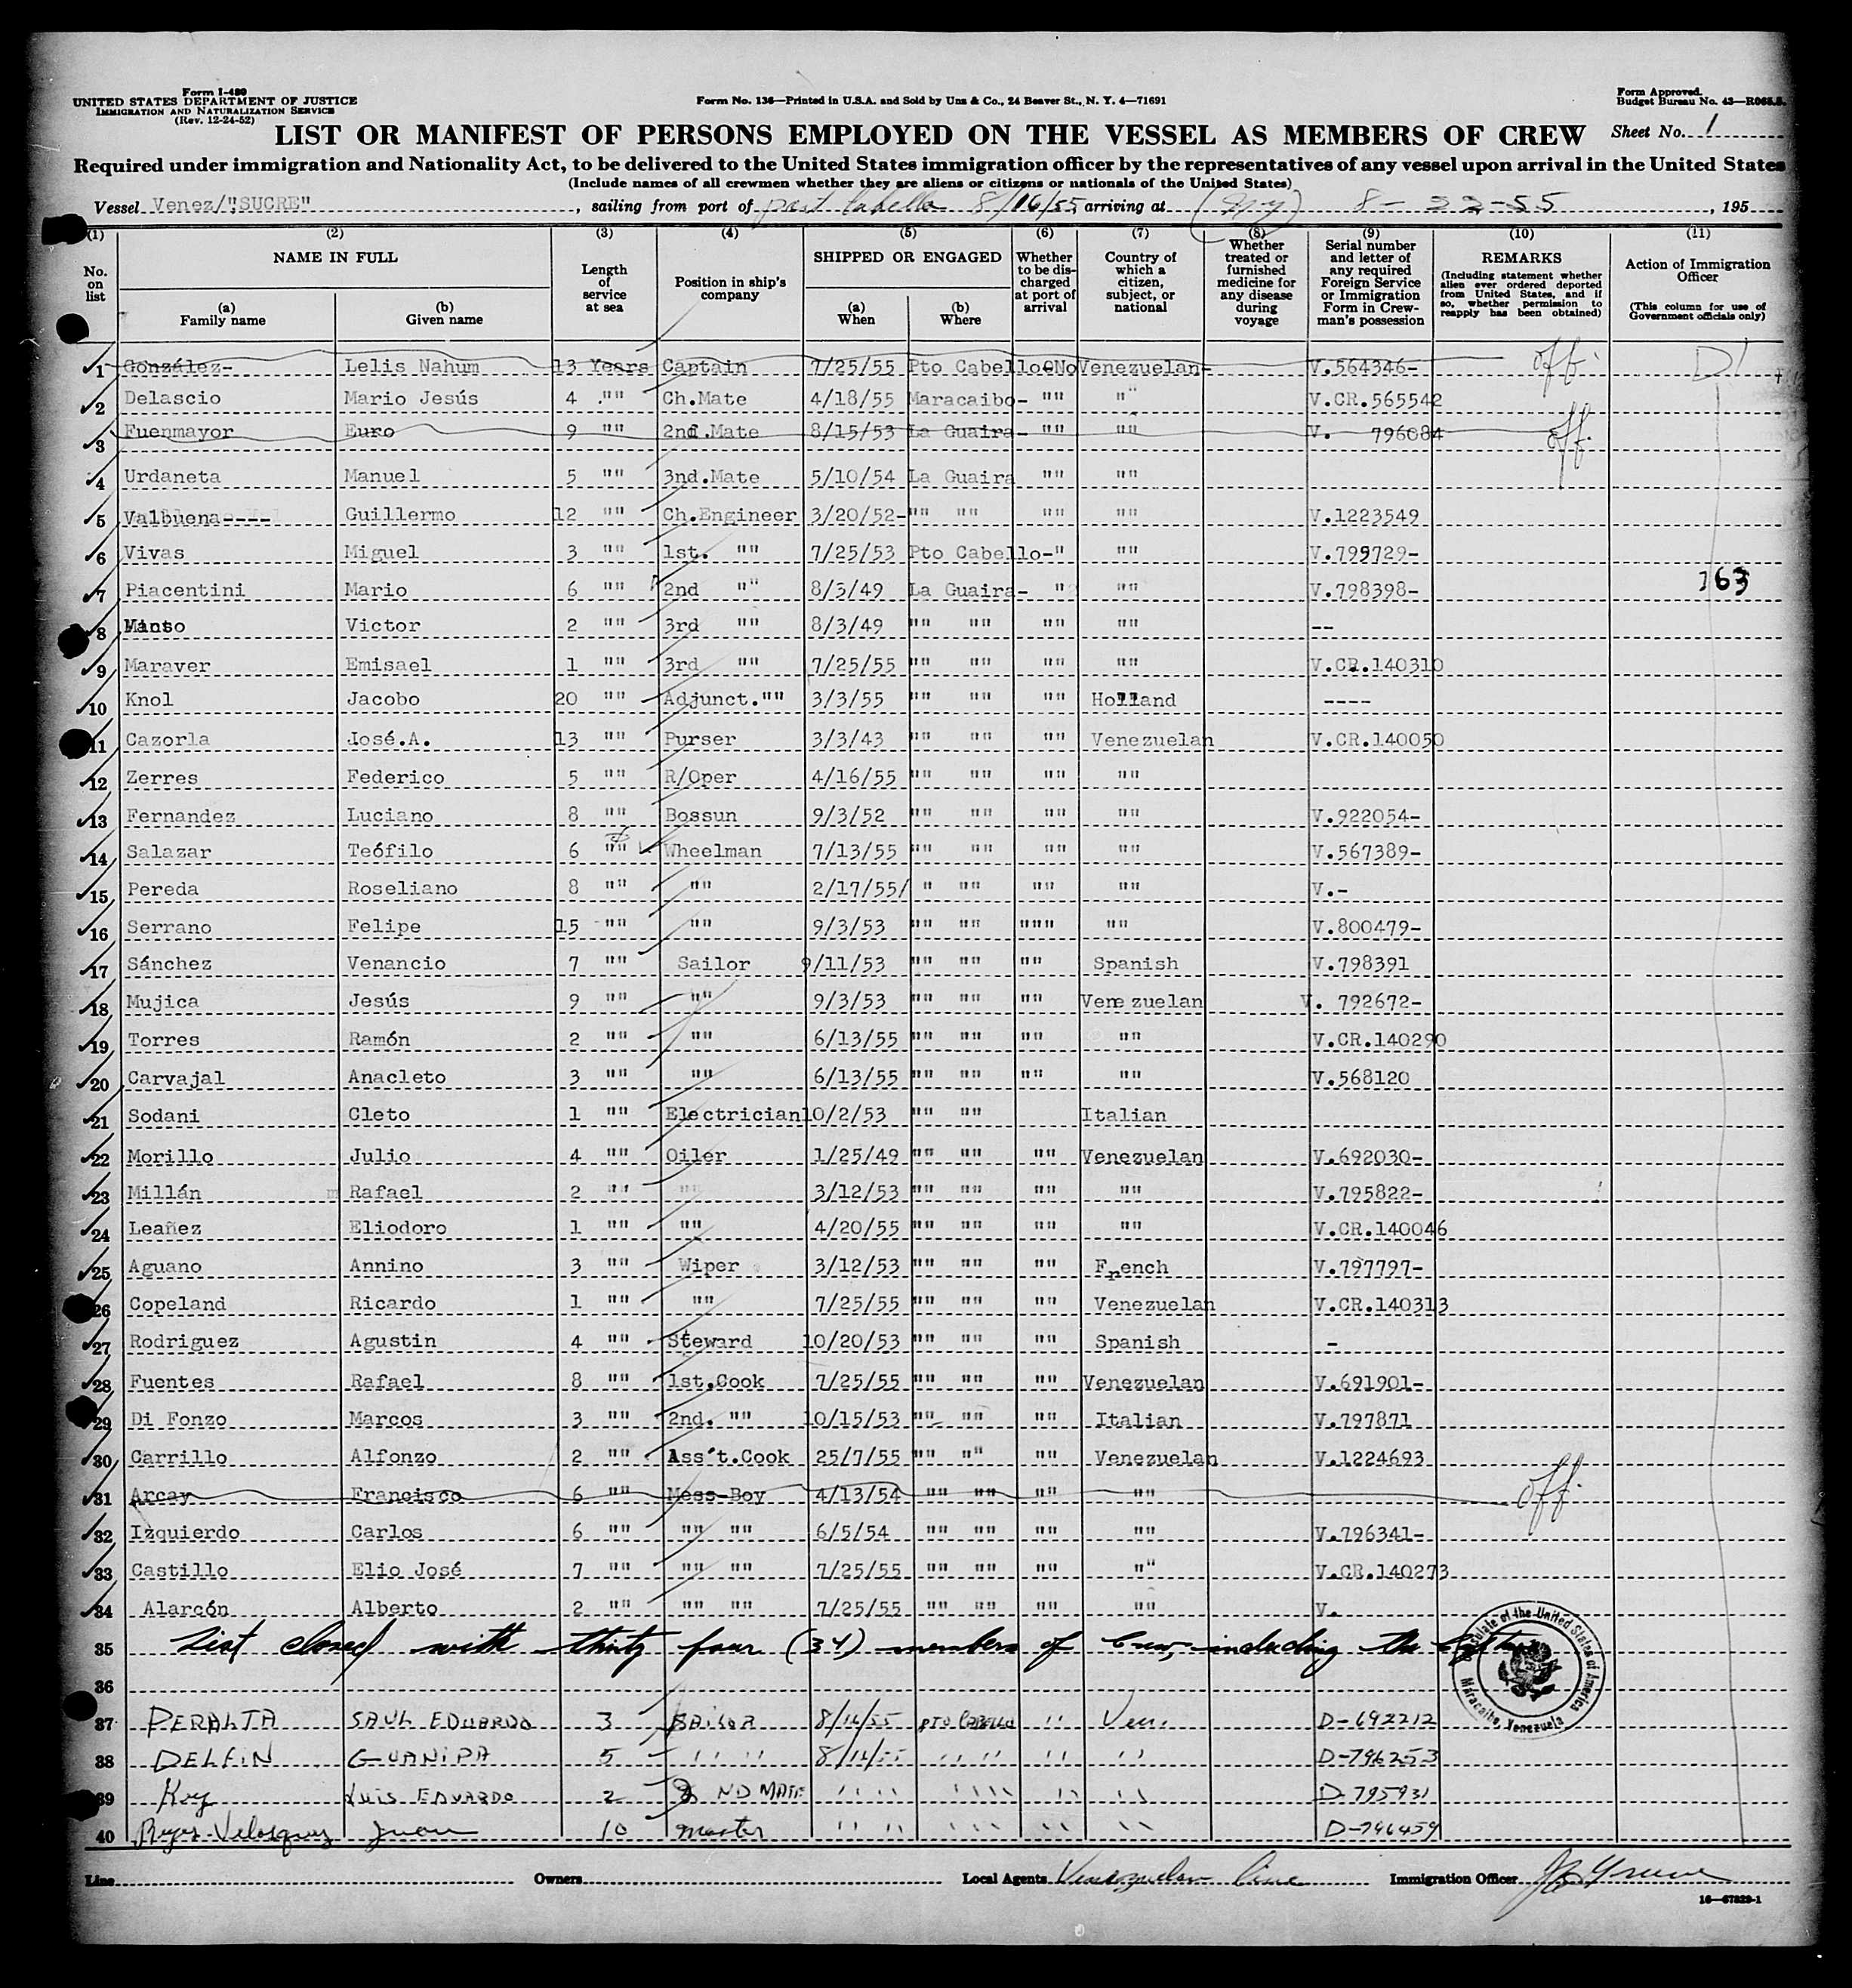 Form I-480
UNITED STATES DEPARTMENT OF JUSTICE
IMMIGRATION AND NATURALIZATION SERVICE
(Rev. 12-24-52)
Form No. 136—Printed in U.S.A. and Sold by Unz & Co., 24 Beaver St., N. Y. 4—71691
Form Approved.
Budget Bureau No. 43—R065.5.
LIST OR MANIFEST OF PERSONS EMPLOYED ON THE VESSEL AS MEMBERS OF CREW Sheet No. 1
Required under immigration and Nationality Act, to be delivered to the United States immigration officer by the representatives of any vessel upon arrival in the United States
(Include names of all crewmen whether they are aliens or citizens or nationals of the United States)
Vessel Venez/"SUCRE", sailing from port of port Cabello 8/16/55 arriving at (NY) 8-22-55, 195
(1) (2) (3) (4) (5) (6) (7) (8) (9) (10) (11)
No. on list
NAME IN FULL
(a) Family name
(b) Given name
Length of service at sea
Position in ship's company
SHIPPED OR ENGAGED
(a) When
(b) Where
Whether to be discharged at port of arrival
Country of which a citizen, subject, or national
Whether treated or furnished medicine for any disease during voyage
Serial number and letter of any required Foreign Service or Immigration Form in Crewman's possession
REMARKS
(Including statement whether alien ever ordered deported from United States, and if so, whether permission to reapply has been obtained)
Action of Immigration Officer
(This column for use of Government officials only)
1 González- Lelis Nahum 13 Years Captain 7/25/55 Pto Cabello-No Venezuelan- V.564346- off. D1
2 Delascio Mario Jesús 4 "" Ch.Mate 4/18/55 Maracaibo- "" " V.CR.565542
3 Fuenmayor Euro 9 "" 2nd.Mate 8/15/53 La Guaira- "" "" V. 796084 off.
4 Urdaneta Manuel 5 "" 3nd.Mate 5/10/54 La Guaira "" ""
5 Valbuena---- Guillermo 12 "" Ch.Engineer 3/20/52- "" "" "" "" V.1223549
6 Vivas Miguel 3 "" 1st. "" 7/25/53 Pto Cabello-" "" V.799729-
7 Piacentini Mario 6 "" 2nd "" 8/5/49 La Guaira- " "" V.798398- 163
8 Victor 2 "" 3rd "" 8/3/49 "" "" "" "" --
9 Maraver Emisael 1 "" 3rd "" 7/25/55 "" "" "" "" V.CR.140310
10 Knol Jacobo 20 "" Adjunct."" 3/3/55 "" "" "" Holland ----
11 Cazorla José.A. 13 "" Purser 3/3/43 "" "" "" Venezuelan V.CR.140050
12 Zerres Federico 5 "" R/Oper 4/16/55 "" "" "" ""
13 Fernandez Luciano 8 "" Bossun 9/3/52 "" "" "" "" V.922054-
14 Salazar Teófilo 6 "" Wheelman 7/13/55 "" "" "" "" V.567389-
15 Pereda Roseliano 8 "" "" 2/17/55/ " "" "" "" V.-
16 Serrano Felipe 15 "" "" 9/3/53 "" "" """ "" V.800479-
17 Sánchez Venancio 7 "" Sailor 9/11/53 "" "" "" Spanish V.798391
18 Mujica Jesús 9 "" "" 9/3/53 "" "" "" Venezuelan V. 792672-
19 Torres Ramón 2 "" "" 6/13/55 "" "" "" "" V.CR.140290
20 Carvajal Anacleto 3 "" "" 6/13/55 "" "" "" "" V.568120
21 Sodani Cleto 1 "" Electrician 10/2/53 "" "" Italian
22 Morillo Julio 4 "" Oiler 1/25/49 "" "" "" Venezuelan V.692030-
23 Millán Rafael 2 "" "" 3/12/53 "" "" "" "" V.795822-
24 Leañez Eliodoro 1 "" "" 4/20/55 "" "" "" "" V.CR.140046
25 Aguano Annino 3 "" Wiper 3/12/53 "" "" "" French V.797797-
26 Copeland Ricardo 1 "" "" 7/25/55 "" "" "" Venezuelan V.CR.140313
27 Rodriguez Agustin 4 "" Steward 10/20/53 "" "" "" Spanish -
28 Fuentes Rafael 8 "" 1st.Cook 7/25/55 "" "" "" Venezuelan V.691901-
29 Di Fonzo Marcos 3 "" 2nd. "" 10/15/53 "" "" "" Italian V.797871
30 Carrillo Alfonzo 2 "" Ass't.Cook 25/7/55 "" "" "" Venezuelan V.1224693
31 Arcay Francisco 6 "" Mess-Boy 4/13/54 "" "" "" "" off.
32 Izquierdo Carlos 6 "" "" "" 6/5/54 "" "" "" "" V.796341-
33 Castillo Elio José 7 "" "" "" 7/25/55 "" "" "" "" V.CR.140273
34 Alarcón Alberto 2 "" "" "" 7/25/55 "" "" "" "" V.
35 List closed with thirty four (34) members of Crew, including the
Consulate of the United States of America
Maracaibo, Venezuela
36
37 PERALTA SAUL EDUARDO 3 SAILOR 8/16/55 PTO CABELLO " Ven. D-692212
38 DELFIN GUANIPA 5 " " 8/16/55 " " " " D-796253
39 Key LUIS EDUARDO 2 2 ND MATE " " " " " " D-795931
40 Reyes-Velasquez Juan 10 Master " " " " " " D-746459
Line Owners Local Agents Venezuelan Line Immigration Officer
16—67829-1